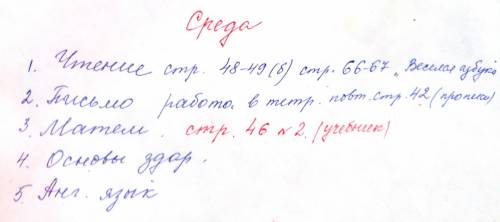 Среда
1. Чтение стр. 48-49 (б) стр. 66-67 „Веселая азбука
2. Письмо работа в тетр. повт. стр. 42 (прописи)
3. Матем. стр. 46 №2. (учебник)
4. Основы здор.
5. Анг. язык